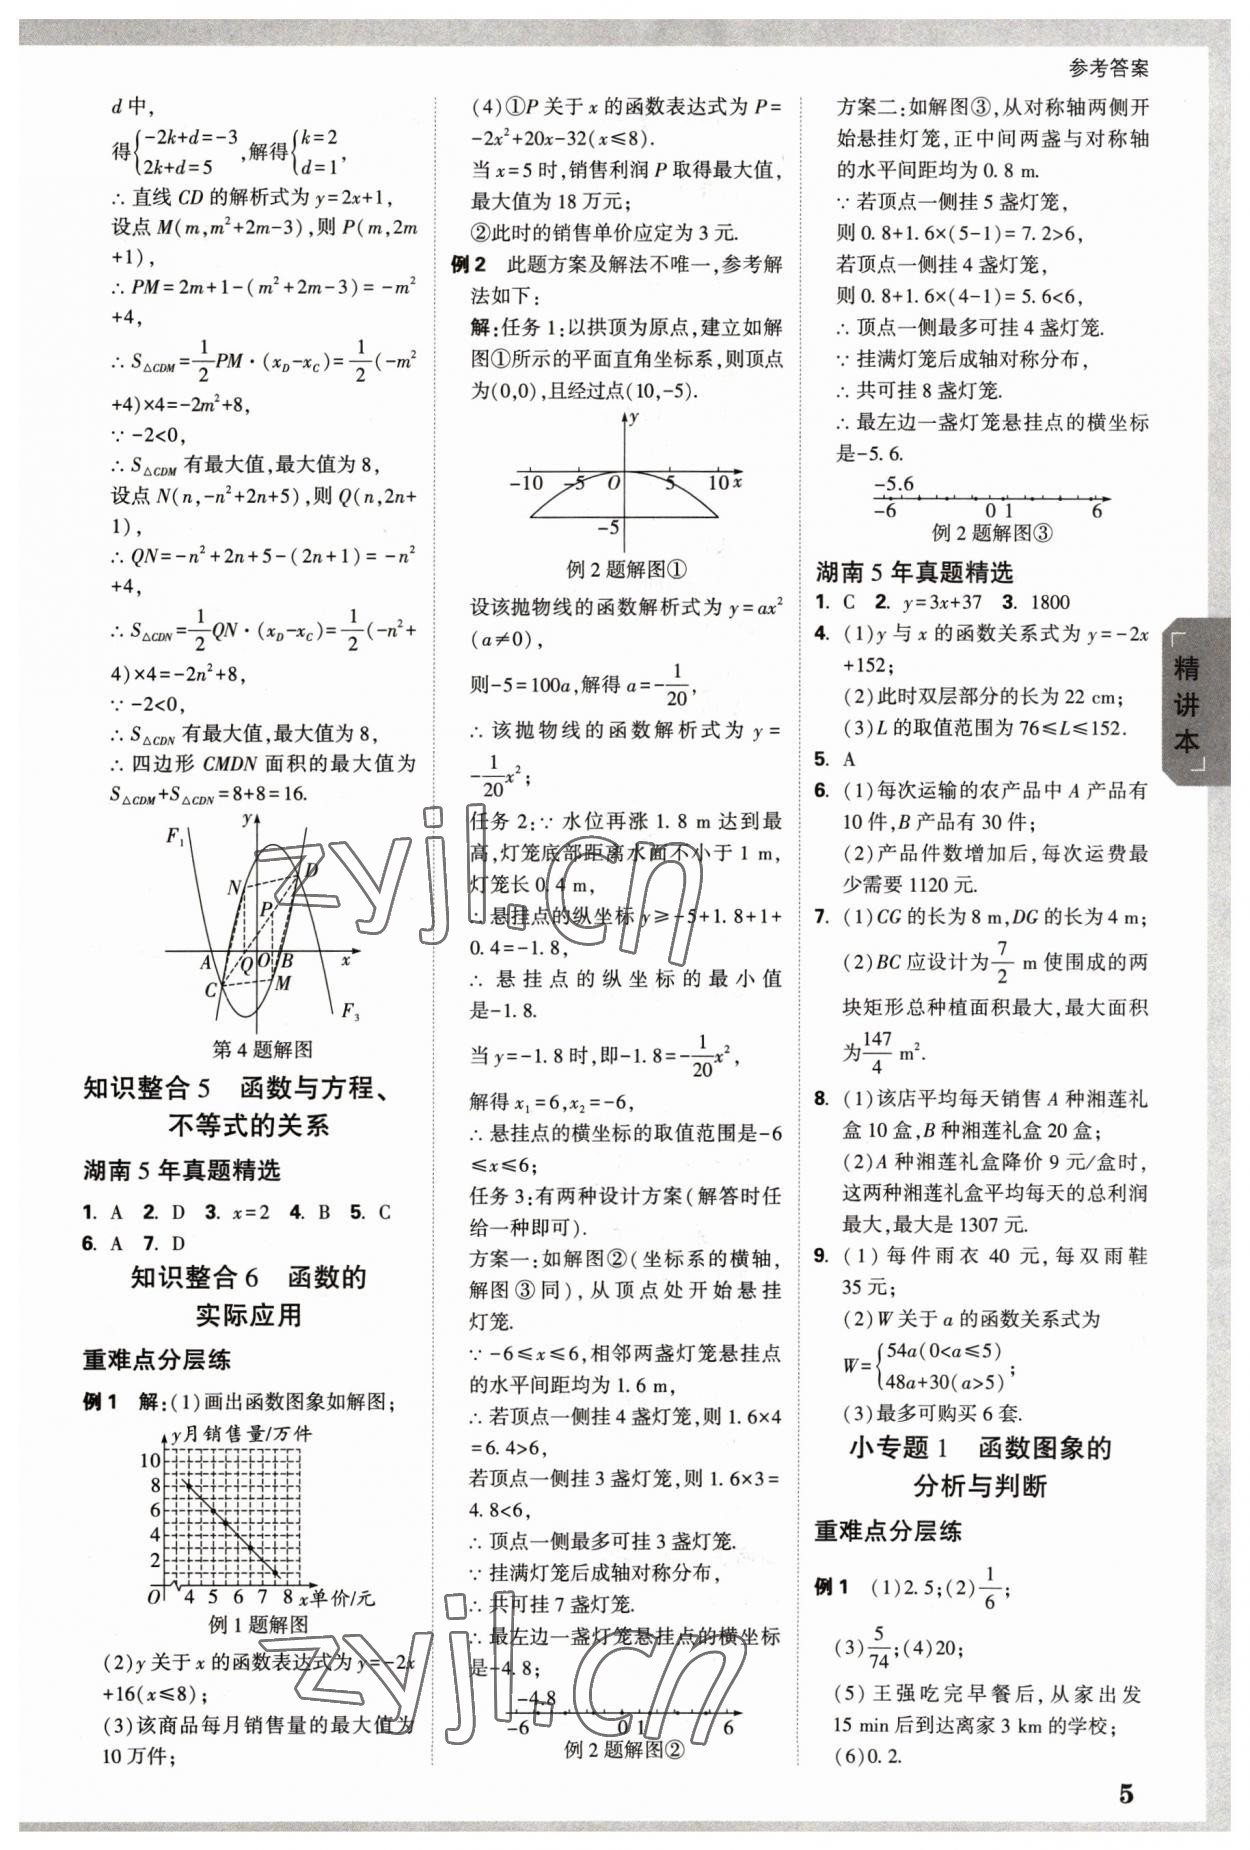 参考答案
d中,
得{-2k+d=-3
2k+d=5,解得{k=2
d=1,
∴直线CD的解析式为y=2x+1,
设点M(m,m²+2m-3),则P(m,2m
+1),
∴PM=2m+1-(m²+2m-3)=-m²
+4,
∴S△CDM=1/2PM·(x_D-x_C)=1/2(-m²
+4)×4=-2m²+8,
∵-2<0,
∴S△CDM有最大值,最大值为8,
设点N(n,-n²+2n+5),则Q(n,2n+
1),
∴QN=-n²+2n+5-(2n+1)=-n²
+4,
∴S△CDN=1/2QN·(x_D-x_C)=1/2(-n²+
4)×4=-2n²+8,
∵-2<0,
∴S△CDN有最大值,最大值为8,
∴四边形CMDN面积的最大值为
S△CDM+S△CDN=8+8=16.
F₁ y N D P A Q O B x C M F₃
第4题解图
知识整合5 函数与方程、
不等式的关系
湖南5年真题精选
1. A 2. D 3. x=2 4. B 5. C
6. A 7. D
知识整合6 函数的
实际应用
重难点分层练
例1 解:(1)画出函数图象如解图;
y月销售量/万件
10
8
6
4
2
O 4 5 6 7 8 x单价/元
例1题解图
(2)y关于x的函数表达式为y=-2x
+16(x≤8);
(3)该商品每月销售量的最大值为
10万件;
(4)①P关于x的函数表达式为P=
-2x²+20x-32(x≤8).
当x=5时,销售利润P取得最大值,
最大值为18万元;
②此时的销售单价应定为3元.
例2 此题方案及解法不唯一,参考解
法如下:
解:任务1:以拱顶为原点,建立如解
图①所示的平面直角坐标系,则顶点
为(0,0),且经过点(10,-5).
y
-10 -5 O 5 10 x
-5
例2题解图①
设该抛物线的函数解析式为y=ax²
(a≠0),
则-5=100a,解得a=-1/20,
∴该抛物线的函数解析式为y=
-1/20x²;
任务2:∵水位再涨1.8 m达到最
高,灯笼底部距离水面不小于1 m,
灯笼长0.4 m,
∴悬挂点的纵坐标y≥-5+1.8+1+
0.4=-1.8,
∴悬挂点的纵坐标的最小值
是-1.8.
当y=-1.8时,即-1.8=-1/20x²,
解得x₁=6,x₂=-6,
∴悬挂点的横坐标的取值范围是-6
≤x≤6;
任务3:有两种设计方案(解答时任
给一种即可).
方案一:如解图②(坐标系的横轴,
解图③同),从顶点处开始悬挂
灯笼.
∵-6≤x≤6,相邻两盏灯笼悬挂点
的水平间距均为1.6 m,
∴若顶点一侧挂4盏灯笼,则1.6×4
=6.4>6,
若顶点一侧挂3盏灯笼,则1.6×3=
4.8<6,
∴顶点一侧最多可挂3盏灯笼.
∵挂满灯笼后成轴对称分布,
∴共可挂7盏灯笼.
∴最左边一盏灯笼悬挂点的横坐标
是-4.8;
-4.8
-6 0 1 6
例2题解图②
方案二:如解图③,从对称轴两侧开
始悬挂灯笼,正中间两盏与对称轴
的水平间距均为0.8 m.
∵若顶点一侧挂5盏灯笼,
则0.8+1.6×(5-1)=7.2>6,
若顶点一侧挂4盏灯笼,
则0.8+1.6×(4-1)=5.6<6,
∴顶点一侧最多可挂4盏灯笼.
∵挂满灯笼后成轴对称分布,
∴共可挂8盏灯笼.
∴最左边一盏灯笼悬挂点的横坐标
是-5.6.
-5.6
-6 0 1 6
例2题解图③
湖南5年真题精选
1. C 2. y=3x+37 3. 1800
4. (1)y与x的函数关系式为y=-2x
+152;
(2)此时双层部分的长为22 cm;
(3)L的取值范围为76≤L≤152.
5. A
6. (1)每次运输的农产品中A产品有
10件,B产品有30件;
(2)产品件数增加后,每次运费最
少需要1120元.
7. (1)CG的长为8 m,DG的长为4 m;
(2)BC应设计为7/2 m使围成的两
块矩形总种植面积最大,最大面积
为147/4 m².
8. (1)该店平均每天销售A种湘莲礼
盒10盒,B种湘莲礼盒20盒;
(2)A种湘莲礼盒降价9元/盒时,
这两种湘莲礼盒平均每天的总利润
最大,最大是1307元.
9. (1)每件雨衣40元,每双雨鞋
35元;
(2)W关于a的函数关系式为
W={54a(0<a≤5)
48a+30(a>5);
(3)最多可购买6套.
小专题1 函数图象的
分析与判断
重难点分层练
例1 (1)2.5;(2)1/6;
(3)5/74;(4)20;
(5)王强吃完早餐后,从家出发
15 min后到达离家3 km的学校;
(6)0.2.
精讲本
5
zyjl.cn
zyjl.cn